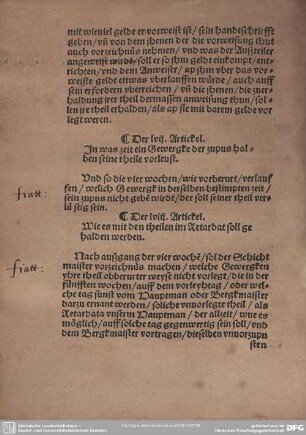 mit wieuiel gelde er vorweist ist/ sein handtschriefft
geben/ vñ von dem jhenen der die vorweisung thut
auch vorzeichnüs nehmen/ vnd was der Außteiler
angeweist wirdt/ soll er so jhm geldt einkompt/ ent-
richten/ vnd dem Anweister/ ap jhm vber das vor-
weiste geldt ettwas vberlauffen würde/ auch auff
sein erfordern vberreichen/ vñ die jhenen/ die zuer-
haldung jrer theil dermassen anweisung thun/ sol-
len jre theil erhalden/ als ap sie mit barem gelde vor
legt weren.
¶ Der lvij. Artickel.
In was zeit ein Gewergke der zupus hal-
ben seine theile vorleust.
Vnd so die vier wochen/ wie vorberurt/ verlauf-
fen/ welich Gewergk in derselben bestimpten zeit/
fiatt: sein zupus nicht gebē wirdt/ der soll seiner theil ver-
lüstig sein.
¶ Der lviij. Artickel.
Wie es mit den theilen im Retardat soll ge
halden werden.
Nach außgang der vier wochē/ sol der Schicht
fiatt: maister vorzeichnüs machen/ welche Gewergkẽ
yhre theil obberurter weyse nicht vorlegt/ die in der
fünfften wochen/ auff dem vorleyhtag/ oder wel-
che tag sunst vom Hauptman oder Bergkmaister
darzu ernant werden/ soliche vnuorlegte theil/ als
Retardata vnsern Hauptman/ der alltzeit/ wue es
möglich/ auff solche tag gegenwertig sein soll/ vnd
dem Bergkmaister vortragen/ dieselben vnuorzupu
sten